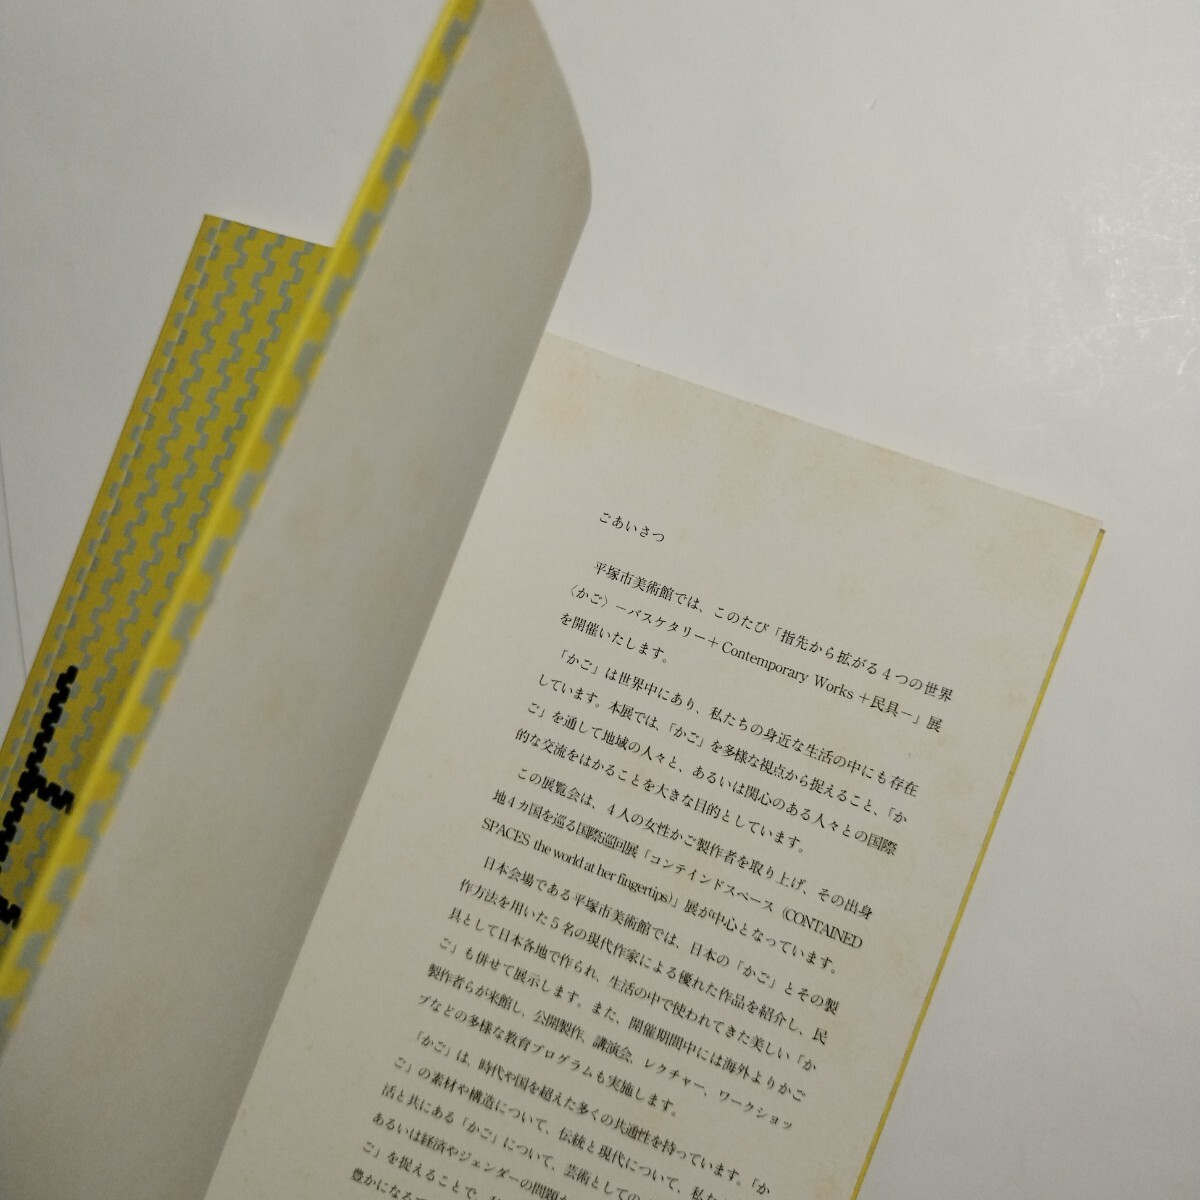 ごあいさつ
平塚市美術館では、このたび「指先から拡がる4つの世界
〈かご〉－バスケタリー＋Contemporary Works＋民具－」展
を開催いたします。
「かご」は世界中にあり、私たちの身近な生活の中にも存在
しています。本展では、「かご」を多様な視点から捉えること、「か
ご」を通して地域の人々と、あるいは関心のある人々との国際
的な交流をはかることを大きな目的としています。
この展覧会は、4人の女性かご製作者を取り上げ、その出身
地4カ国を巡る国際巡回展「コンテインドスペース（CONTAINED
SPACES the world at her fingertips）」展が中心となっています。
日本会場である平塚市美術館では、日本の「かご」とその製
作方法を用いた5名の現代作家による優れた作品を紹介し、民
具として日本各地で作られ、生活の中で使われてきた美しい「か
ご」も併せて展示します。また、開催期間中には海外よりかご
製作者らが来館し、公開製作、講演会、レクチャー、ワークショッ
プなどの多様な教育プログラムも実施します。
「かご」は、時代や国を超えた多くの共通性を持っています。「か
ご」の素材や構造について、伝統と現代について、私た
活と共にある「かご」について、芸術としての
あるいは経済やジェンダーの問題
ご」を捉えることで、
豊かになる